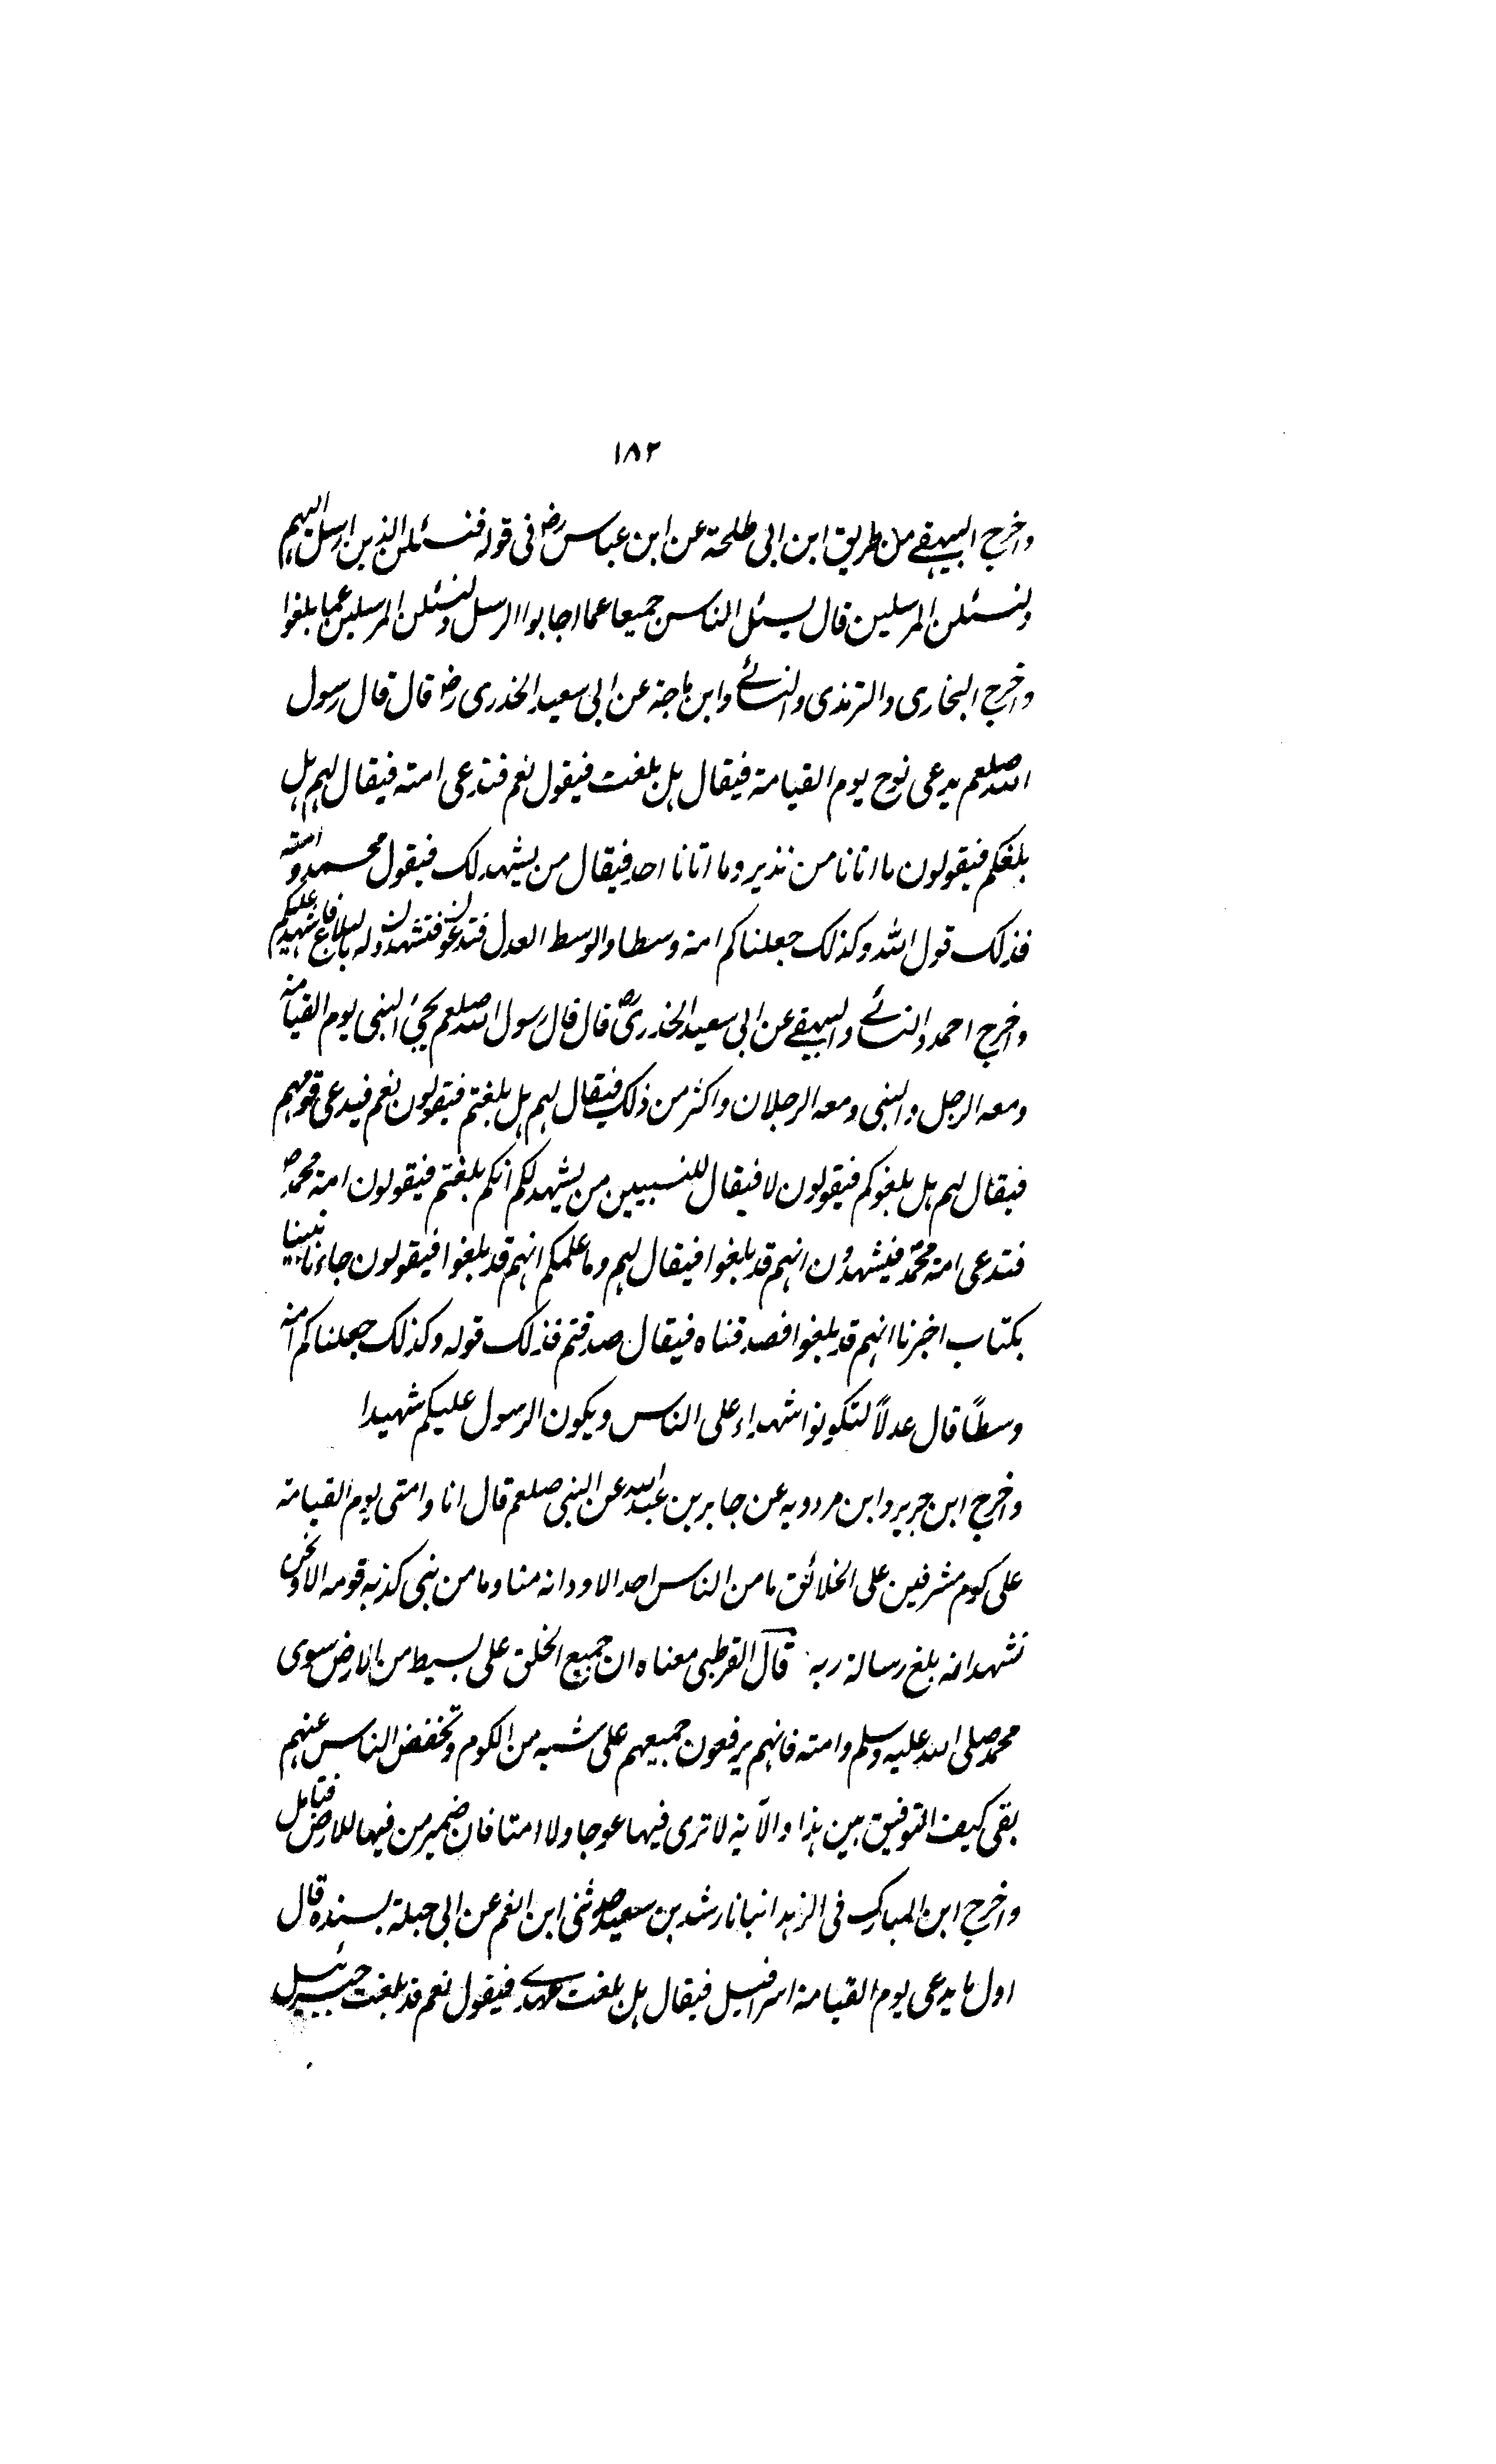 ١٨٢
واخرج البيهقے من طريق ابن ابى طلحة عن ابن عباس رض فى قوله فنسئلن الذين ارسل اليهم
ولنسئلن المرسلين قال يسئل الناس جميعا عما اجابوا الرسل ولنسئلن المرسلين عما بلغوا
واخرج البخارى والترمذى والنسائے وابن ماجة عن ابى سعيد الخدرى رض قال قال رسول
الله صلعم يدعى نوح يوم القيامة فيقال هل بلغت فيقول نعم فتدعى امته فيقال لهم هل
بلغكم فيقولون ما اتانا من نذير وما اتانا احد فيقال من يشهد لك فيقول محمد وامته
فذلك قول الله وكذلك جعلناكم امة وسطا والوسط العدل فتدعون فتشهدون له بالبلاغ شهيد عليكم
واخرج احمد والنسائے والبيهقے عن ابى سعيد الخدرى رض قال قال رسول الله صلعم يجئ النبى يوم القيامة
ومعه الرجل والنبى ومعه الرجلان واكثر من ذلك فيقال لهم هل بلغتم فيقولون نعم فيدعى قومهم
فيقال لهم هل بلغوكم فيقولون لا فيقال للنبيين من يشهد لكم انكم بلغتم فيقولون امة محمد ص
فتدعى امة محمد فيشهدون انهم قد بلغوا فيقال لهم وما علمكم انهم قد بلغوا فيقولون جاءنا نبينا
بكتاب اخبرنا انهم قد بلغوا فصدقناه فيقال صدقتم فذلك قوله وكذلك جعلناكم امة
وسطًا قال عدلاً لتكونوا شهداء على الناس ويكون الرسول عليكم شهيدا
واخرج ابن جرير وابن مردويه عن جابر بن عبد الله عن النبى صلعم قال انا وامتى يوم القيامة
على كوم مشرفين على الخلائق ما من الناس احد الا ود انه منا وما من نبى كذبه قومه الا ونحن
نشهد انه بلغ رسالة ربه قال القرطبى معناه ان جميع الخلق على بسيط من الارض سوى
محمد صلى الله عليه وسلم وامته فانهم يرفعون جميعهم على شبه من الكوم وتخفض الناس عنهم
بقى كيف التوفيق بين هذا والآية لا ترى فيها عوجا ولا امتا فان ضمير من فيها للارض فتامل
واخرج ابن المبارك فى الزهد انبانا رشد بن سعيد حدثنى ابن انعم عن ابى جبلة بسنده قال
اول ما يدعى يوم القيامة اسرافيل فيقال هل بلغت عهدے فيقول نعم قد بلغت جبرئيل